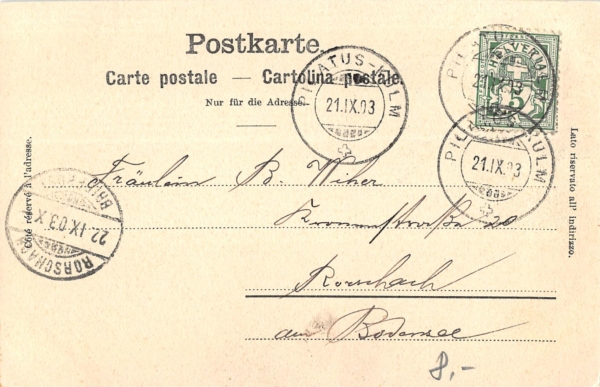 Postkarte.
Carte postale — Cartolina postale.
Nur für die Adresse.
PILATUS-KULM
21.IX.03
HELVETIA
5
PILATUS-KULM
21.IX.03
PILATUS-KULM
21.IX.03
Côté réservé à l'adresse.
Lato riservato all' indirizzo.
RORSCHACH
22.IX.03.X
Fräulein B. Wiher
Kronenstraße 20
Rorschach
am Bodensee
8,-